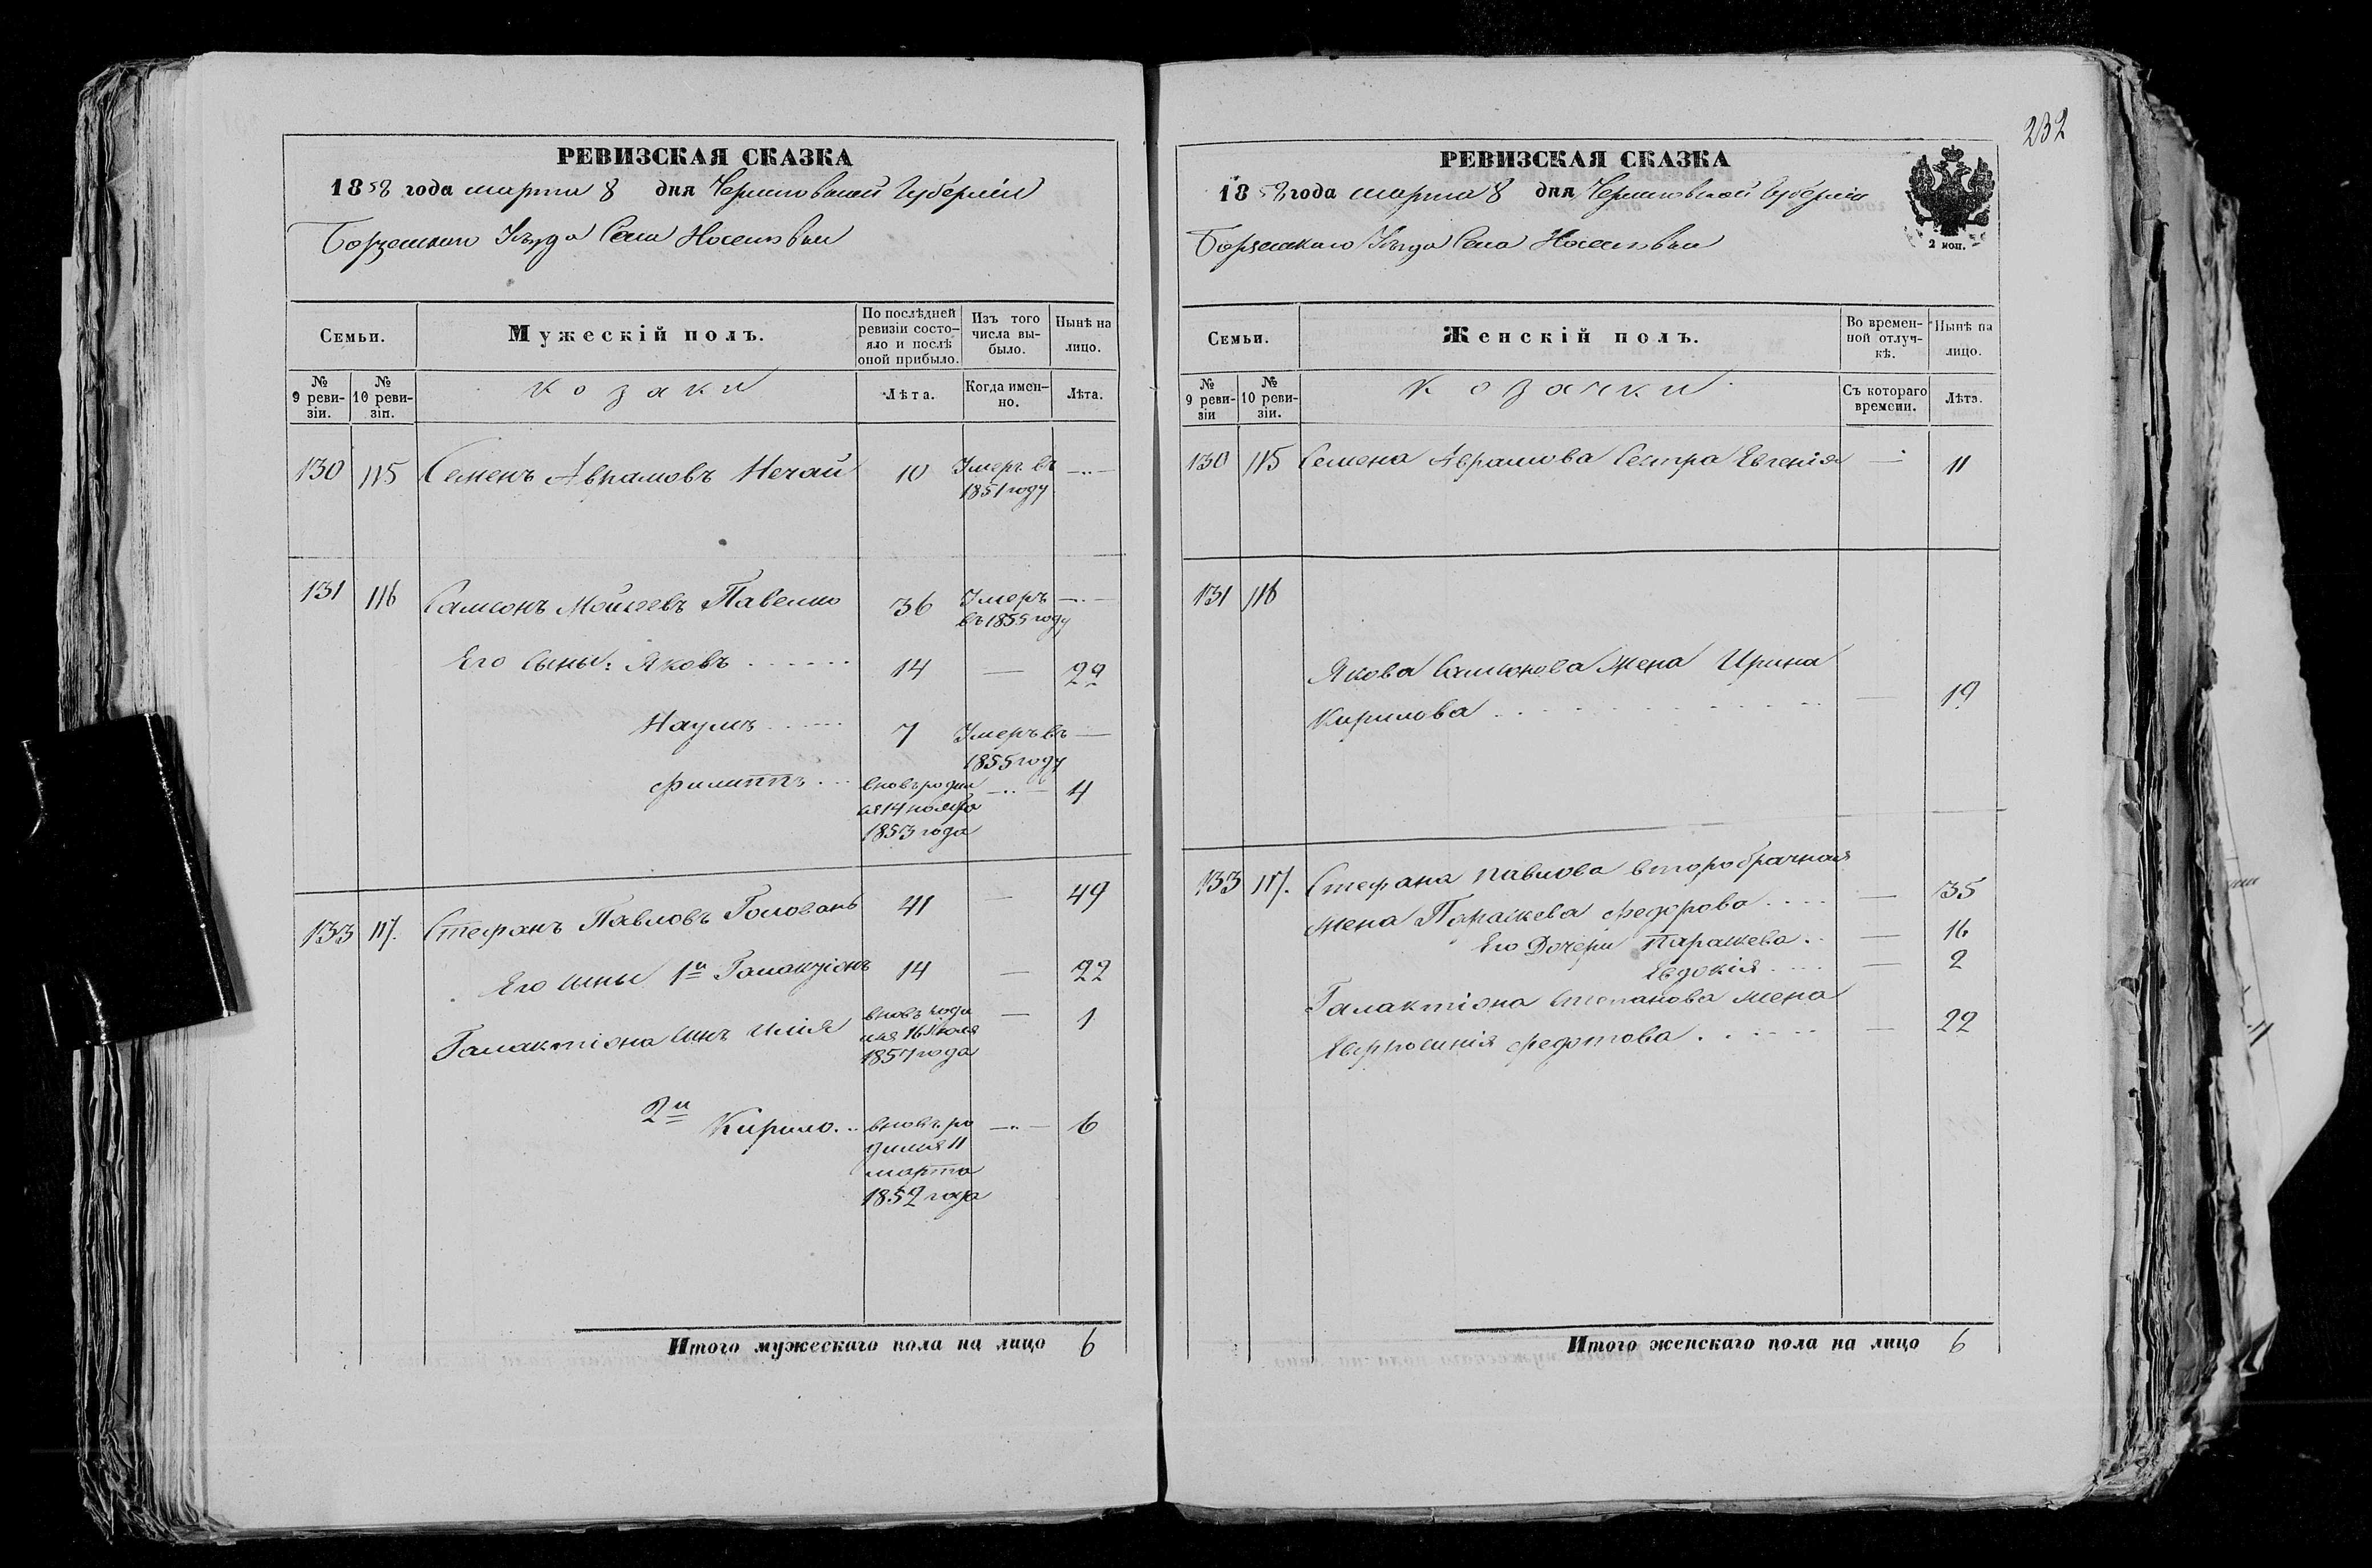 232
РЕВИЗСКАЯ СКАЗКА
1858 года марта 8 дня Черниговской Губерніи
Борзенскаго Уѣзда Села Носелевки
Семьи.
Мужескій полъ.
По послѣдней ревизіи состояло и послѣ оной прибыло.
Изъ того числа выбыло.
Нынѣ на лицо.
№ 9 ревизіи.
№ 10 ревизіи.
козаки
Лѣта.
Когда именно.
Лѣта.
130 115 Семенъ Аврамовъ Нечай 10 Умеръ въ 1851 году —
131 116 Самсонъ Мойсеевъ 36 Умеръ въ 1855 году —
Его сыны: Яковъ 14 — 22
Наумъ 7 Умеръ въ 1855 году —
Филиппъ вновь родился 14 ноября 1853 года — 4
133 117. Стефанъ Павловъ Головань 41 — 49
Его сыны 1й Галактіонъ 14 — 22
Галактіона сынъ Илія вновь родился 16 Іюля 1857 года — 1
2й Кирило вновь родился 11 марта 1852 года — 6
Итого мужескаго пола на лицо 6
РЕВИЗСКАЯ СКАЗКА
1858 года марта 8 дня Черниговской Губерніи
Борзенскаго Уѣзда Села Носелевки
2 коп.
Семьи.
Женскій полъ.
Во временной отлучкѣ.
Нынѣ на лицо.
№ 9 ревизіи
№ 10 ревизіи.
козачки
Съ котораго времени.
Лѣта.
130 115 Семена Аврамова Сестра Евгенія — 11
131 116
Якова Самсонова жена Ирина
Кирилова — 19
133 117. Стефана Павлова второбрачная
жена Параскева Федорова — 35
Его Дочери Параскева — 16
Евдокія — 2
Галактіона Степанова жена
Евфросинія Федотова — 22
Итого женскаго пола на лицо 6